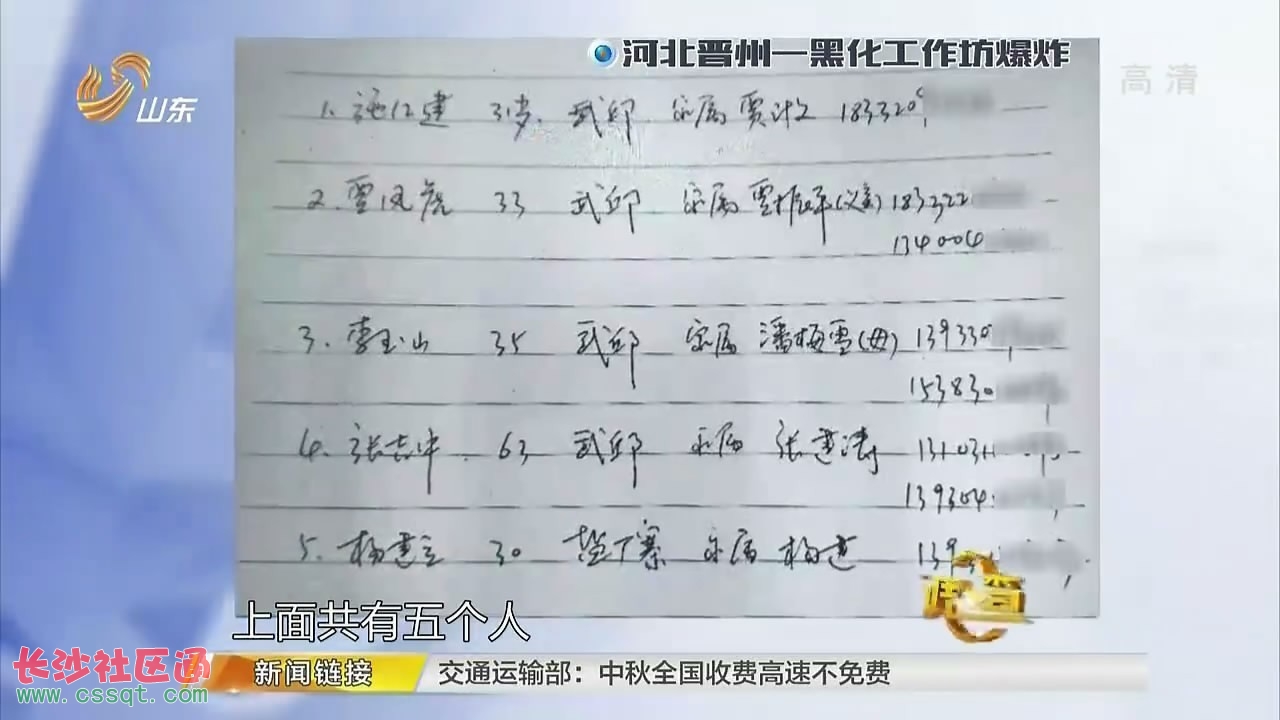 河北晋州一黑化工作坊爆炸
山东
高清
1. 施仁建 31岁. 武邱 家属 贾 183320
2. 贾风虎 33 武邱 家属 贾 183322
134004
3. 李玉山 35 武邱 家属 潘梅雪(母) 139330
153830
4. 张志中. 63 武邱 家属 张建涛 131031
139304
5. 杨建立 30 寨 家属 杨建 139
上面共有五个人
长沙社区通
www.cssqt.com
新闻链接
交通运输部：中秋全国收费高速不免费